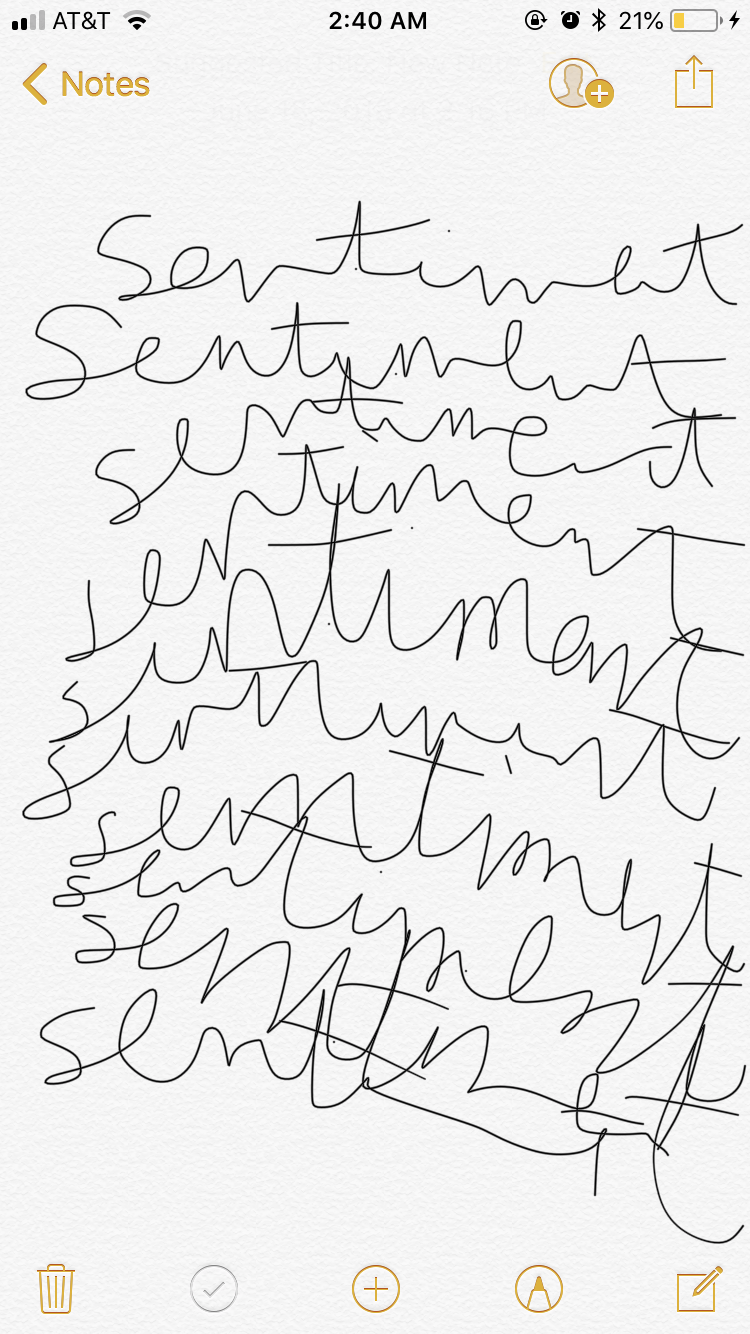 AT&T 2:40 AM 21%
Notes
Sentiment
Sentiment
sentiment
sentiment
sentiment
sentiment
sentiment
sentiment
sentiment
sentiment